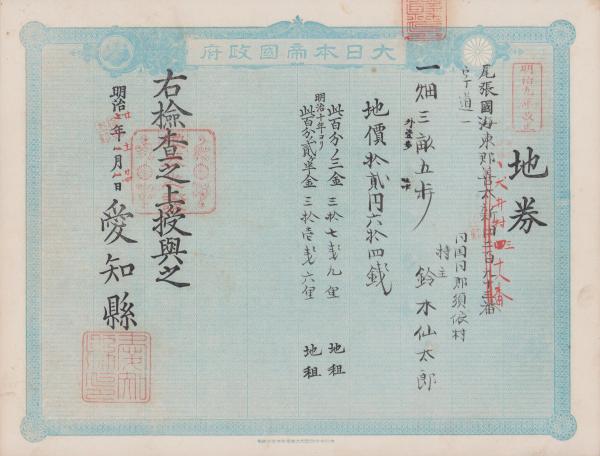 大日本帝國政府
明治九年改正
地券
尾張國海東郡善太新田
字丁道一
同国同郡須依村
持主 鈴木仙太郎
一畑三畝五歩
地價拾貳円六拾四錢
此百分ノ三金三拾七銭九厘 地租
明治十年ヨリ
此百分ノ貳半金三拾壱銭六厘 地租
右檢查之上授與之
明治 年 月 日
愛知縣